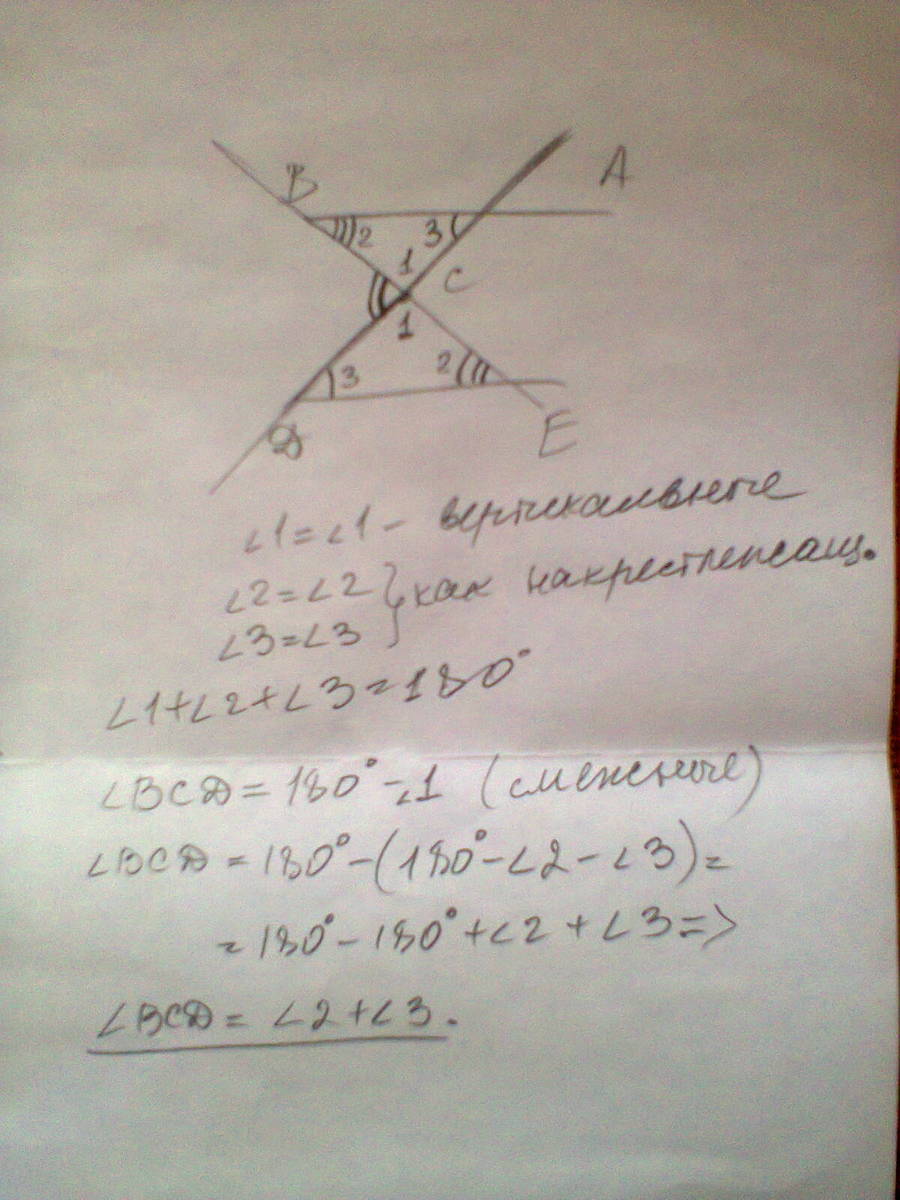 B
A
2
3
1
C
1
3
2
D
E
∠1=∠1 - вертикальные
∠2=∠2 } как накрестлежащ.
∠3=∠3
∠1+∠2+∠3=180°
∠BCD = 180° - ∠1 (смежные)
∠BCD = 180° - (180° - ∠2 - ∠3) =
= 180° - 180° + ∠2 + ∠3 =>
∠BCD = ∠2 + ∠3.